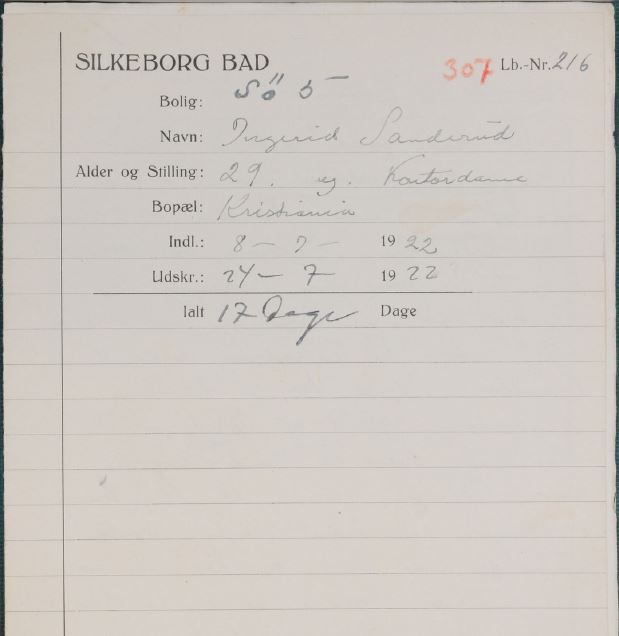 SILKEBORG BAD 307 Lb.-Nr. 216
Bolig: Sö 5
Navn: Ingerid Sanderud
Alder og Stilling: 29. ug. Kontordame
Bopæl: Kristiania
Indl.: 8 – 7 – 1922
Udskr.: 24 – 7 1922
Ialt 17 Dage Dage